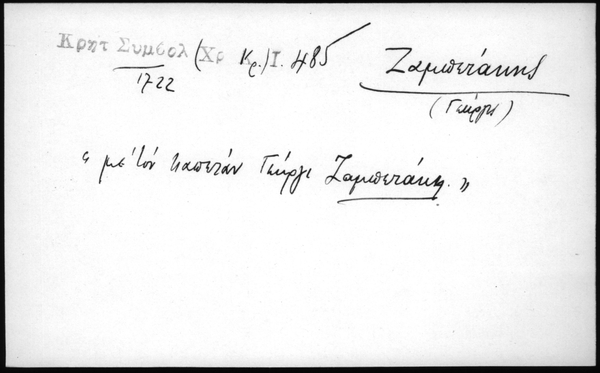 Κρητ Συμβολ (Χρ Κρ.) Ι. 485
1722
Ζαμπετάκης
(Γεώργις)
" με τον καπετάν Γεώργι Ζαμπετάκη. "